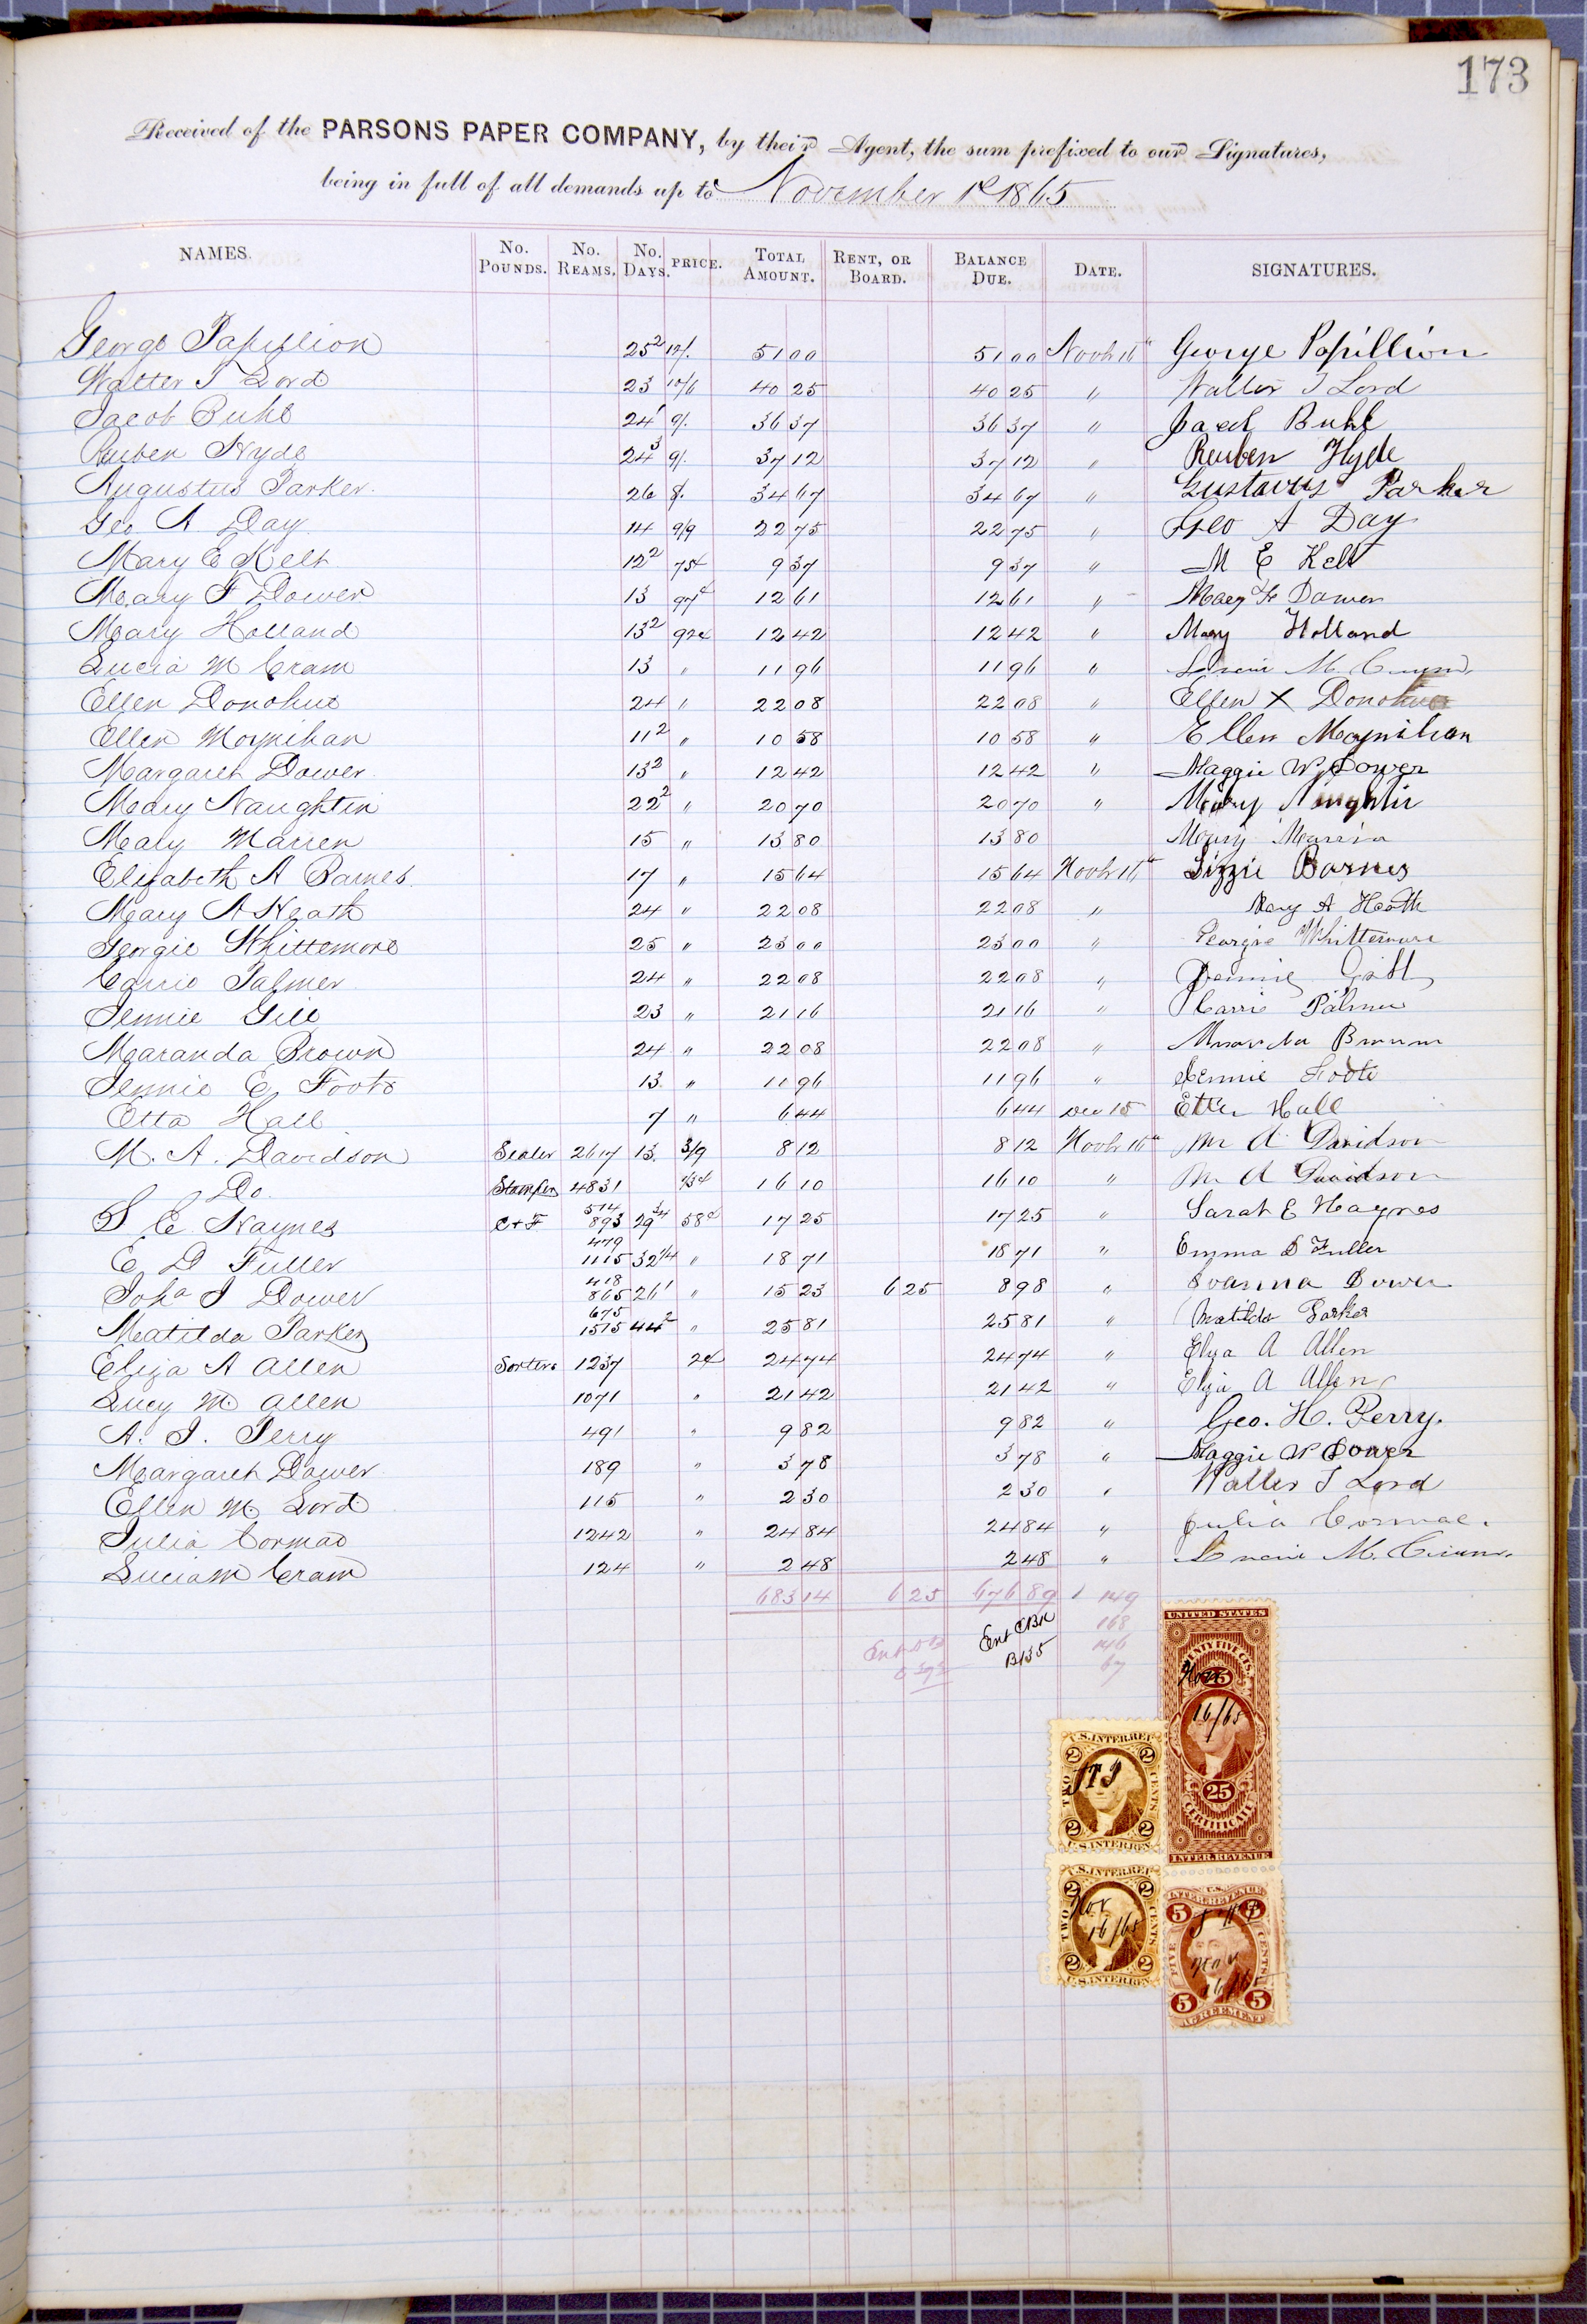 173
Received of the PARSONS PAPER COMPANY, by their Agent, the sum prefixed to our Signatures,
being in full of all demands up to November 1st 1865
NAMES. No. POUNDS. No. REAMS. No. DAYS. PRICE. TOTAL AMOUNT. RENT, OR BOARD. BALANCE DUE. DATE. SIGNATURES.
George Papillion 25² 12/. 51 00 51 00 Novbr 16" George Papillion
Walter T Lord 23 10/6 40 25 40 25 " Walter T Lord
Jacob Buhl 24' 9/. 36 37 36 37 " Jacob Buhl
Reuben Hyde 24³ 9/. 37 12 37 12 " Reuben Hyde
Augustus Parker 26 8/. 34 67 34 67 " Gustavus Parker
Geo A Day 14 9/9 22 75 22 75 " Geo A Day
Mary E Kelt 12² 75¢ 9 37 9 37 " M E Kelt
Mary F Dower 13 97¢ 12 61 12 61 " Mary F Dower
Mary Holland 13² 92¢ 12 42 12 42 " Mary Holland
Lucia M Cram 13 " 11 96 11 96 " Lucia M. Cram
Ellen Donohue 24 " 22 08 22 08 " Ellen X Donohue
Ellen Moynihan 11² " 10 58 10 58 " Ellen Moynihan
Margaret Dower 13² " 12 42 12 42 " Maggie W Dower
Mary Naughtin 22² " 20 70 20 70 " Mary Naughtin
Mary Marren 15 " 13 80 13 80 Mary Marren
Elizabeth A Barnes 17 " 15 64 15 64 Novbr 16" Lizzie Barnes
Mary A Heath 24 " 22 08 22 08 " Mary A Heath
Georgie Whittemore 25 " 23 00 23 00 " Georgie Whittemore
Carrie Palmer 24 " 22 08 22 08 " Jennie Gill
Jennie Gill 23 " 21 16 21 16 " Carrie Palmer
Maranda Brown 24 " 22 08 22 08 " Maranda Brown
Jennie E Foote 13 " 11 96 11 96 " Jennie Foote
Etta Hall 7 " 6 44 6 44 Dec 15 Etta Hall
M. A. Davidson Sealer 2617 13 3/9 8 12 8 12 Novbr 16" M A Davidson
Do. Stamper 4831 16 10 16 10 " M A Davidson
S E Haynes C+F 514 893 29 3/4 58¢ 17 25 17 25 " Sarah E Haynes
E D Fuller 479 1115 32 1/4 " 18 71 18 71 " Emma D Fuller
Joha J Dower 418 865 26' " 15 23 6 25 8 98 " Joanna Dower
Matilda Parker 675 1515 44² " 25 81 25 81 " Matilda Parker
Eliza A Allen Sorters 1237 2¢ 24 74 24 74 " Eliza A Allen
Lucy M. Allen 1071 " 21 42 21 42 " Eliza A Allen
A. J. Perry 491 " 9 82 9 82 " Geo. H. Perry.
Margaret Dower 189 " 3 78 3 78 " Maggie W Dower
Ellen M. Lord 115 " 2 30 2 30 " Walter T Lord
Julia Cormac 1242 " 24 84 24 84 " Julia Cormac.
Lucia M Cram 124 " 2 48 2 48 " Lucia M. Cram.
683 14 6 25 676 89 149
Ent CBK 168
B135 146
67
UNITED STATES
TWENTY FIVE CTS.
25
Nov
16/65
25
CERTIFICATE
INTER. REVENUE
U.S. INTER. REV.
2 2
TWO CENTS
2 2
U.S. INTER. REV.
U.S. INTER. REV.
2 2
Nov
16/65
TWO CENTS
2 2
U.S. INTER. REV.
U.S.
INTER. REVENUE
5 5
Nov
16/65
FIVE CENTS
5 5
AGREEMENT